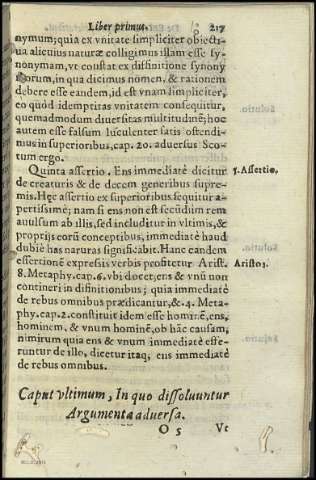 Liber primus. 217
nymum; quia ex vnitate simpliciter obiecti-
ua alicuius naturæ colligimus illam esse sy-
nonymam, vt constat ex disfinitione synony
morum, in qua dicimus nomen, & rationem
debere esse eandem, id est vnam simpliciter,
eo quòd idemptitas vnitatem consequitur,
quemadmodum diuersitas multitudinẽ; hoc
autem esse falsum luculenter satis ostendi-
mus in superioribus, cap. 20. aduersus Sco-
tum ergo.
Quinta assertio. Ens immediatè dicitur
5. Assertio.
de creaturis & de decem generibus supre-
mis. Hęc assertio ex superioribus sequitur a-
pertissimè; nam si ens non est secũdùm rem
auulsum ab illis, sed includitur in vltimis, &
proprijs eorũ conceptibus, immediatè haud
dubiè has naturas significabit. Hanc eandem
assertionẽ expressis verbis profitetur Arist.
Arist.
8. Metaph. cap. 6. vbi docet, ens & vnũ non
contineri in disfinitionibus; quia immediatè
de rebus omnibus prædicantur, &. 4. Meta-
phy. cap. 2. constituit idem esse hominẽ, ens,
hominem, & vnum hominẽ, ob hãc causam,
nimirum quia ens & vnum immediatè effe-
runtur de illo, dicetur itaq, ens immediatè
de rebus omnibus.
Caput vltimum, In quo dissoluuntur
Argumenta aduersa.
O 5 Vt